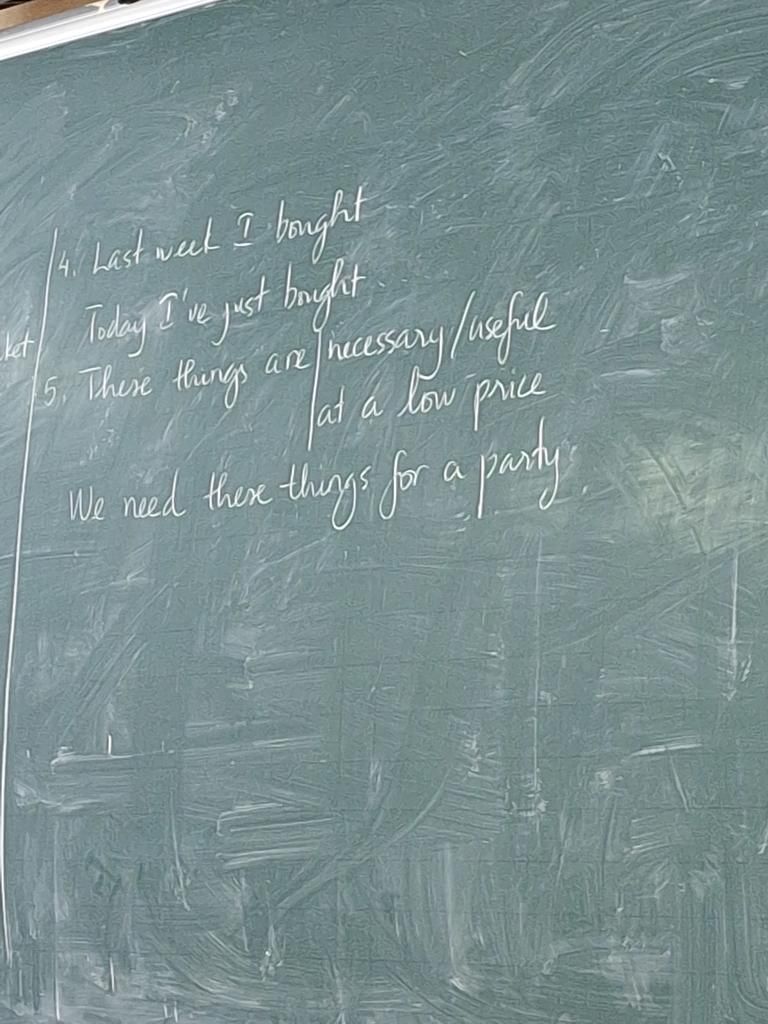 4. Last week I bought
Today I've just bought.
5. These things are necessary/useful
at a low price
We need these things for a party.